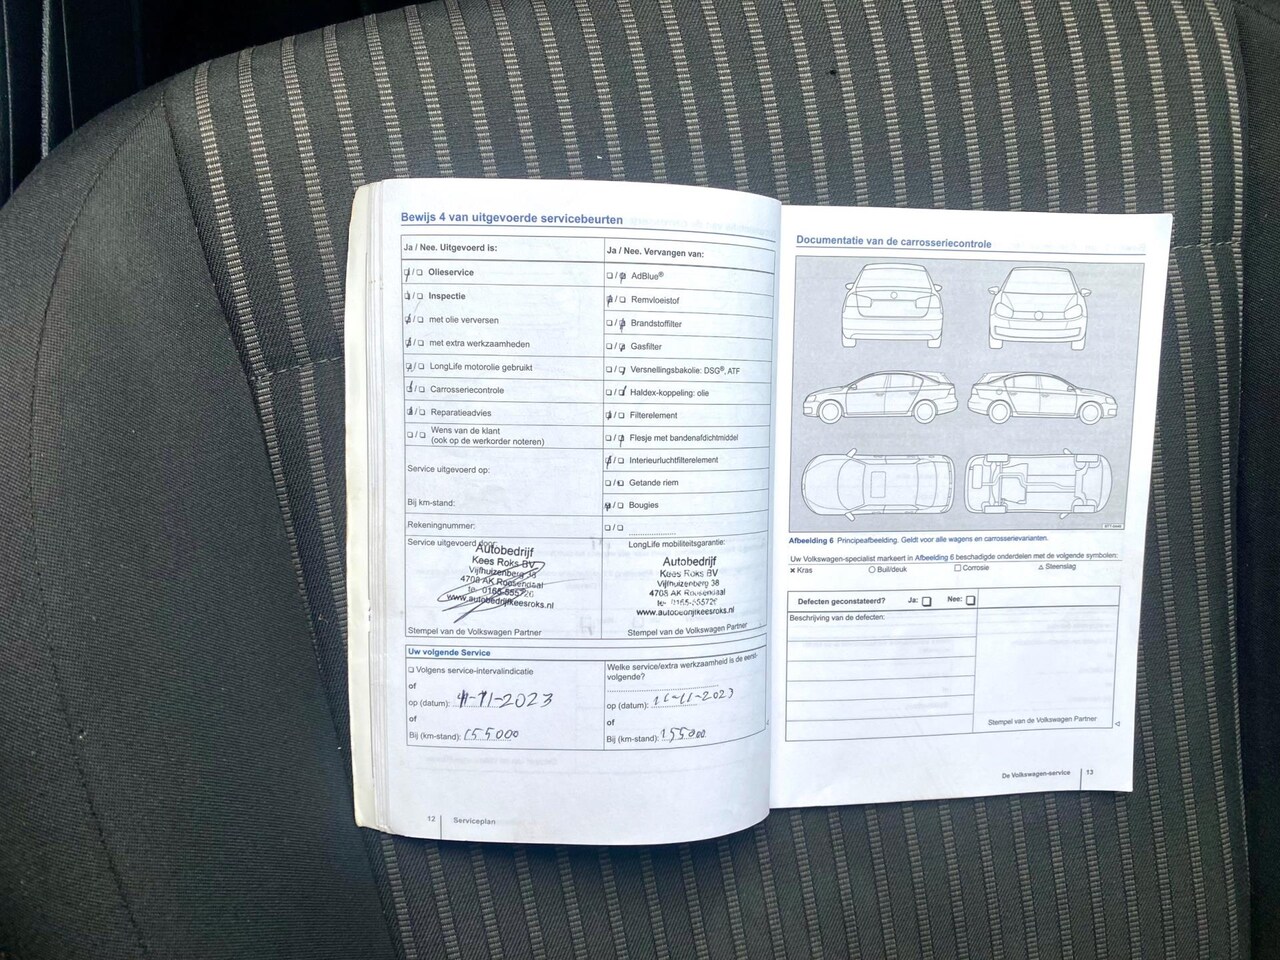 Bewijs 4 van uitgevoerde servicebeurten
Ja / Nee. Uitgevoerd is:
Olieservice
Inspectie
met olie verversen
met extra werkzaamheden
LongLife motorolie gebruikt
Carrosseriecontrole
Reparatieadvies
Wens van de klant
(ook op de werkorder noteren)
Service uitgevoerd op:
Bij km-stand:
Rekeningnummer:
Service uitgevoerd door:
Autobedrijf
Kees Roks BV
Vijfhuizenberg 38
4708 AK Roosendaal
tel. 0165-555726
www.autobedrijfkeesroks.nl
Stempel van de Volkswagen Partner
Ja / Nee. Vervangen van:
AdBlue®
Remvloeistof
Brandstoffilter
Gasfilter
Versnellingsbakolie: DSG®, ATF
Haldex-koppeling: olie
Filterelement
Flesje met bandenafdichtmiddel
Interieurluchtfilterelement
Getande riem
Bougies
LongLife mobiliteitsgarantie:
Autobedrijf
Kees Roks BV
Vijfhuizenberg 38
4708 AK Roosendaal
tel. 0165-555726
www.autobedrijfkeesroks.nl
Stempel van de Volkswagen Partner
Uw volgende Service
Volgens service-intervalindicatie
of
op (datum): 11-11-2023
of
Bij (km-stand): 155000
Welke service/extra werkzaamheid is de eerst-
volgende?
op (datum): 11-11-2023
of
Bij (km-stand): 155000
12 Serviceplan
Documentatie van de carrosseriecontrole
Afbeelding 6 Principeafbeelding. Geldt voor alle wagens en carrosserievarianten.
Uw Volkswagen-specialist markeert in Afbeelding 6 beschadigde onderdelen met de volgende symbolen:
Kras Buil/deuk Corrosie Steenslag
Defecten geconstateerd? Ja: Nee:
Beschrijving van de defecten:
Stempel van de Volkswagen Partner
De Volkswagen-service 13